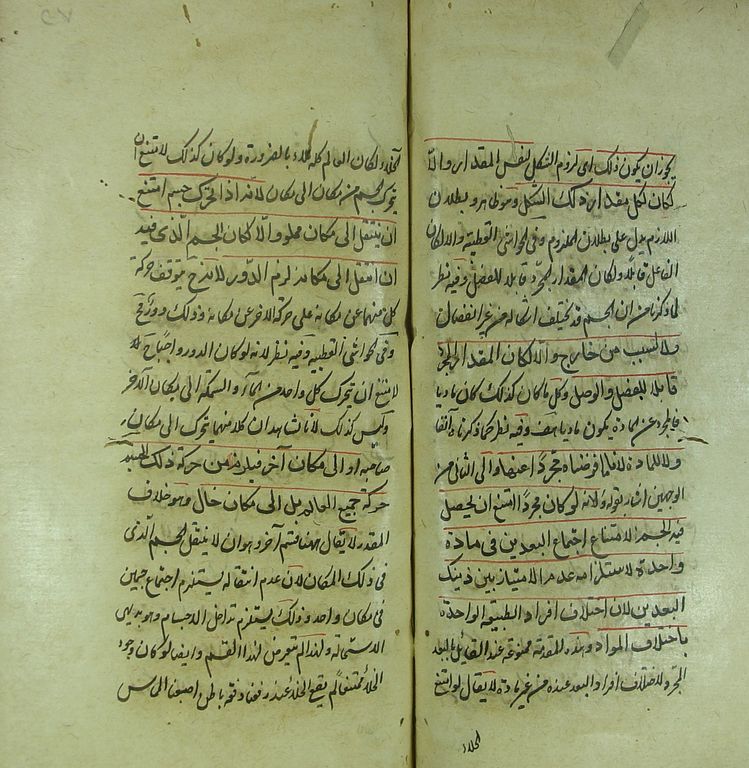 يجوز ان يكون ذلك اى لزوم الشكل لنفس المقدار والا
لكان لكل مقدار ذلك الشكل وبطلان
اللازم يدل على بطلان الملزوم وفى الحواشى القطبية والا لكان
قابلا ولكان المقدار المجرد قابلا للفصل وفيه نظر
لما ذكرنا من ان الجسم قد يختلف اشكاله من غير انفصال
ولا لسبب من خارج والا لكان المقدار المجرد
قابلا للفصل والوصل وكل ما كان كذلك كان ماديا
فالمجرد عن المادة يكون ماديا هف وفيه نظر كما ذكرناه آنفا
ولا للمادة لانا فرضناه مجردا عنها والى الثانى من
الوجهين اشار بقوله ولانه لو كان مجردا امتنع ان يحصل
فيه الجسم لامتناع اجتماع البعدين فى مادة
واحدة لاستلزامه عدم الامتياز بين ذينك
البعدين لان اختلاف افراد الطبيعة الواحدة
باختلاف المواد وهذه المقدمة ممنوعة عند القائل بالبعد
المجرد لاختلاف افراد البعد عنده من غير مادة لا يقال لو امتنع
الخلاء
الخلاء لكان العالم كله ملاء بالضرورة ولو كان كذلك لامتنع ان
يتحرك الجسم من مكان الى مكان لانه اذا تحرك جسم امتنع
ان ينتقل الى مكان مملو والا لكان الجسم الذى فيه
ان انتقل الى مكانه لزم الدور لانه ح يتوقف حركة
كل منهما عن مكانه على حركة الاخر عن مكانه وذلك دور
وفى الحواشى القطبية وفيه نظر لانه لو كان الدور
لامتنع ان يتحرك كل واحد من الماء والسمكة الى مكان الاخر
وليس كذلك لانا نشاهد ان كلا منهما يتحرك الى مكان
صاحبه او الى مكان آخر فيلزم من حركة ذلك الجسم
حركة جميع العالم بل الى مكان خال وهو خلاف
المقدر لا يقال ههنا قسم آخر وهو ان لا ينتقل الجسم الذى
فى ذلك المكان لان عدم انتقاله يستلزم اجتماع جسمين
فى مكان واحد وذلك يستلزم تداخل الاجسام وهو بديهى
الاستحالة ولهذا لم يتعرض لهذا القسم وايضا لو كان وجود
الخلاء ممتنعا لم يقع الخلاء عند رفعنا دفعة باطن اصبعنا الماس